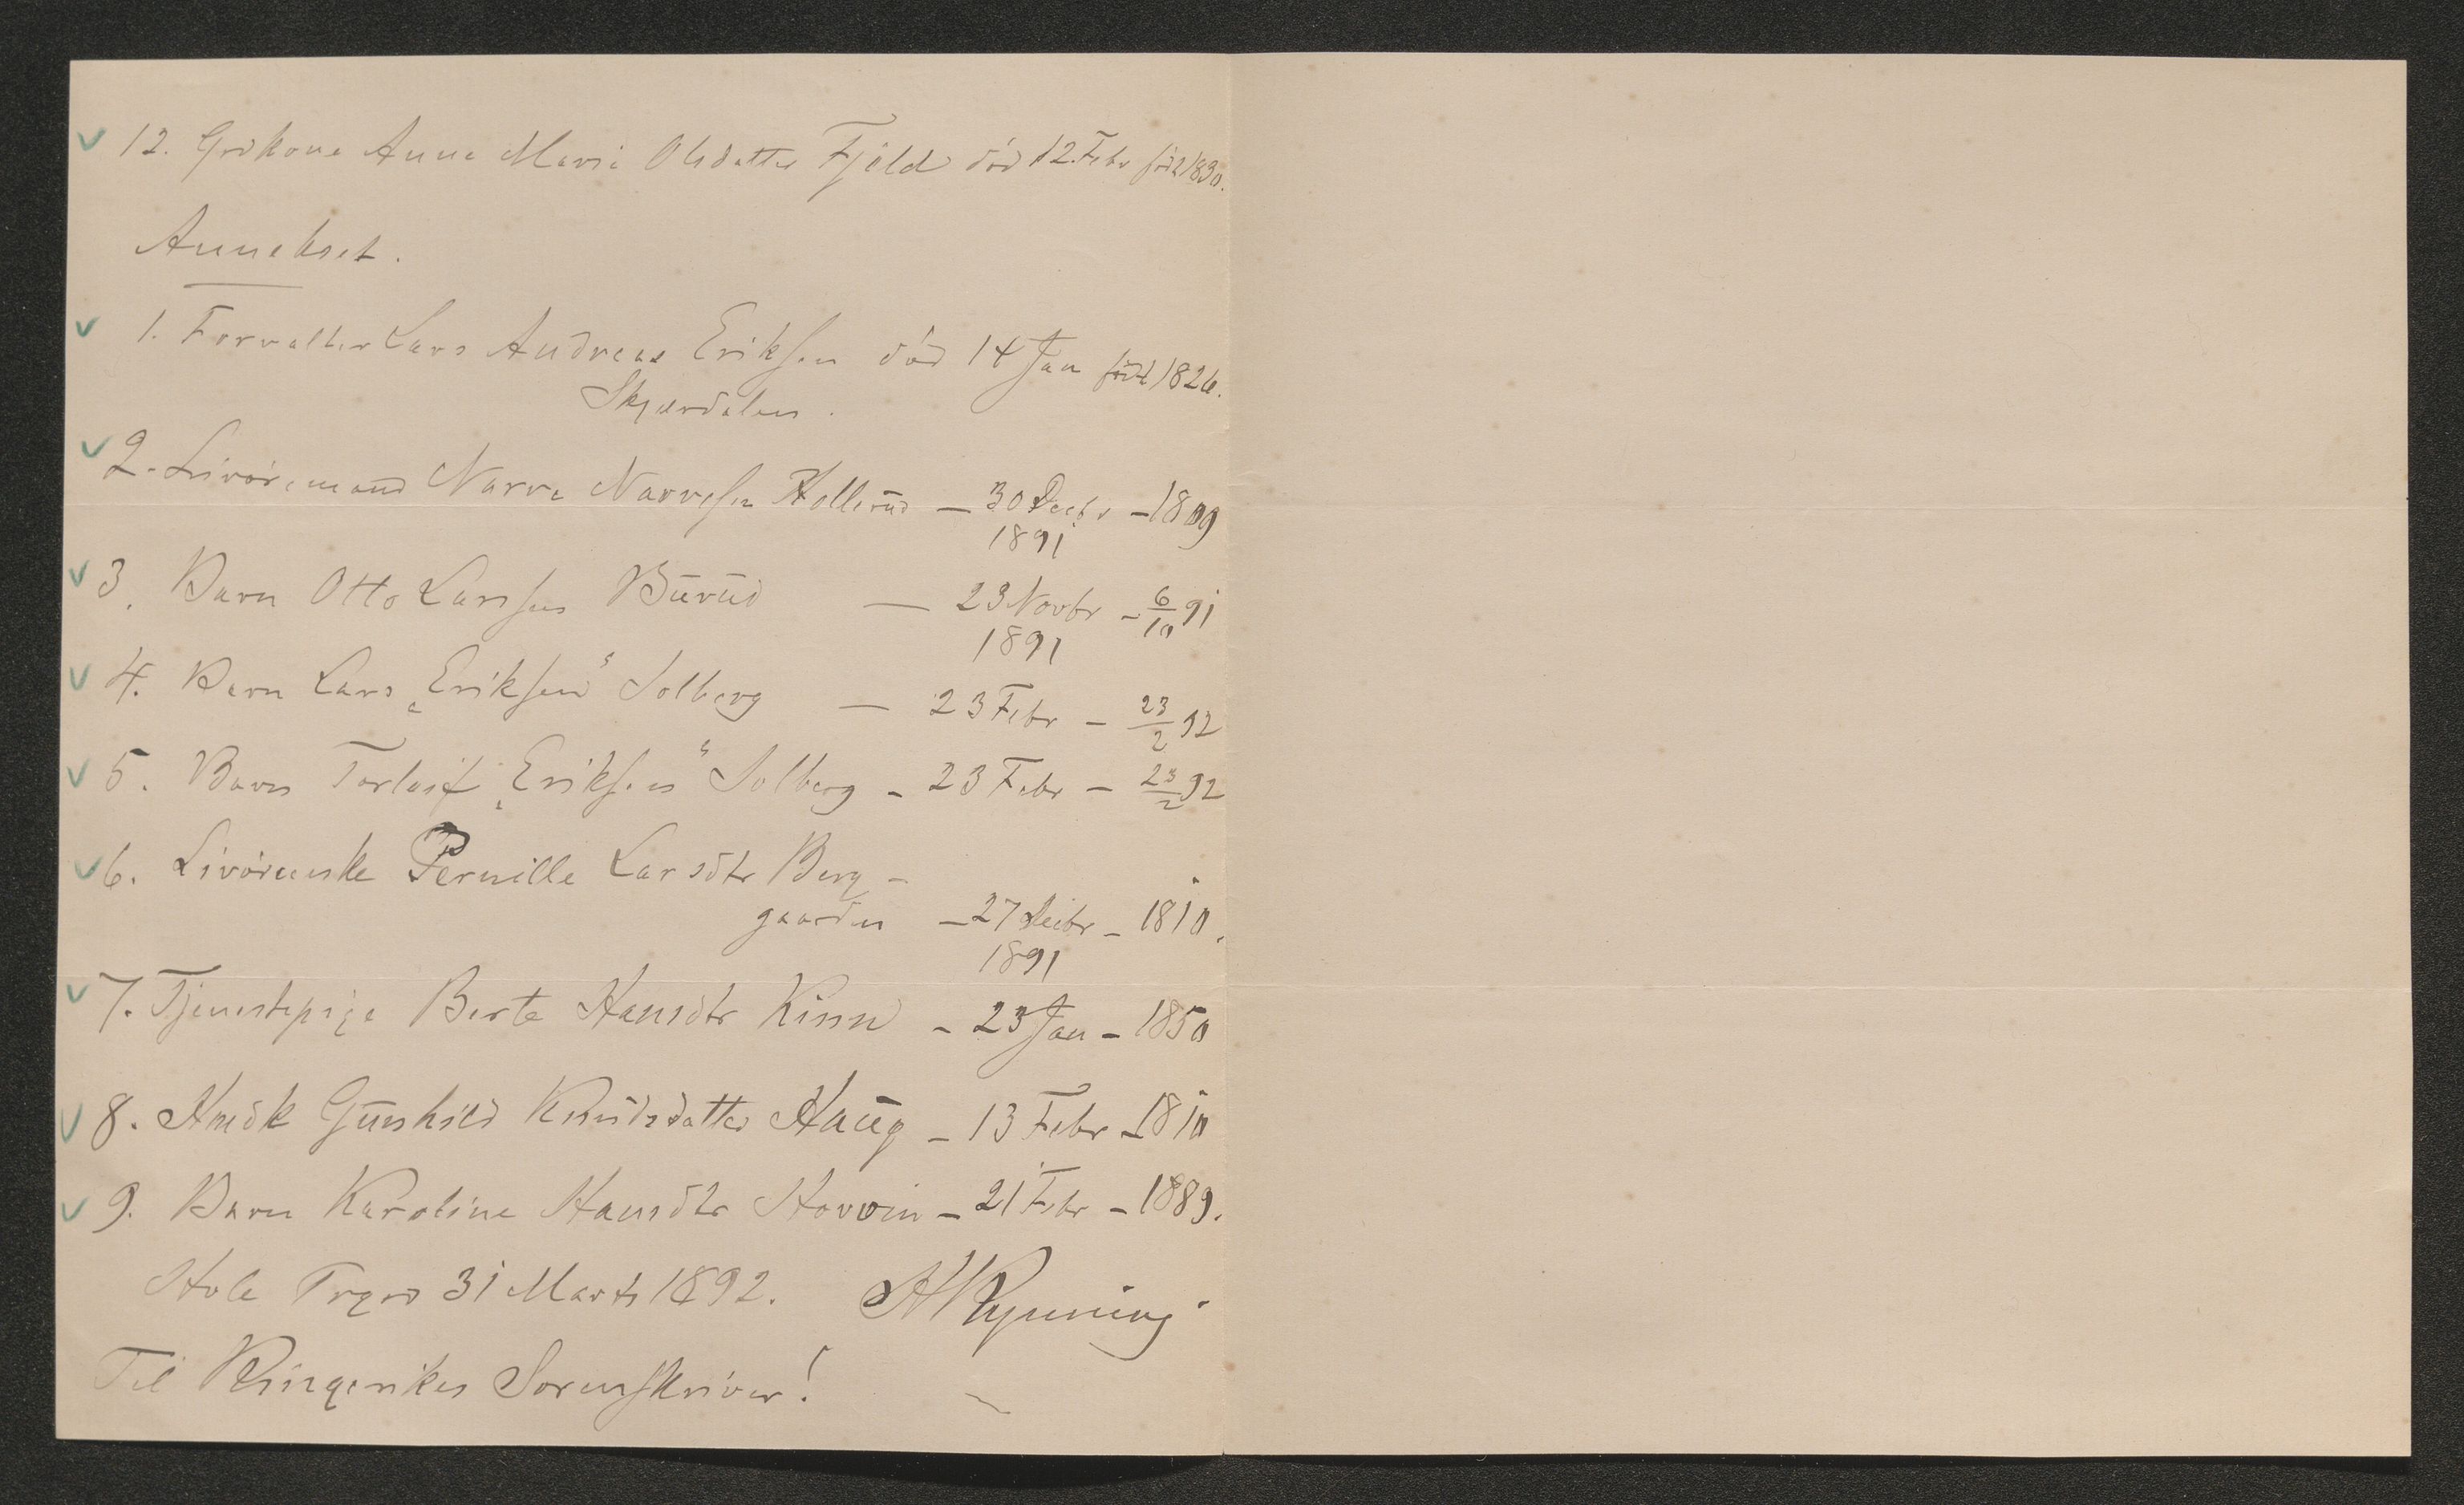 12. Grdkone Anne Marie Olsdatter Fjeld död 12. Febr född 1830.
Annekset.
1. Forvalter Lars Andreas Eriksen död 14 Jan född 1826.
Skjærdalen.
2. Livöremand Narve Narvesen Hollerud — 30 Decbr - 1809
1891
3. Barn Otto Larssen Burud — 23 Novbr - 6/10 91
1891
4. Barn Lars „Eriksen“ Solberg — 23 Febr - 23/2 92
5. Barn Torleif „Eriksen“ Solberg - 23 Febr - 23/2 92
6. Livörenske Pernille Larsdtr Berg-
gaarden - 27 Decbr - 1810.
1891
7. Tjenestepige Berte Hansdtr Kinn - 23 Jan - 1850
8. Hmdk Gunhild Knudsdatter Haug - 13 Febr - 1810
9. Barn Karoline Hansdtr Horvin - 21 Febr - 1889.
Hole Prgrd 31 Marts 1892. Rynning
Til Ringerikes Sorenskriver!